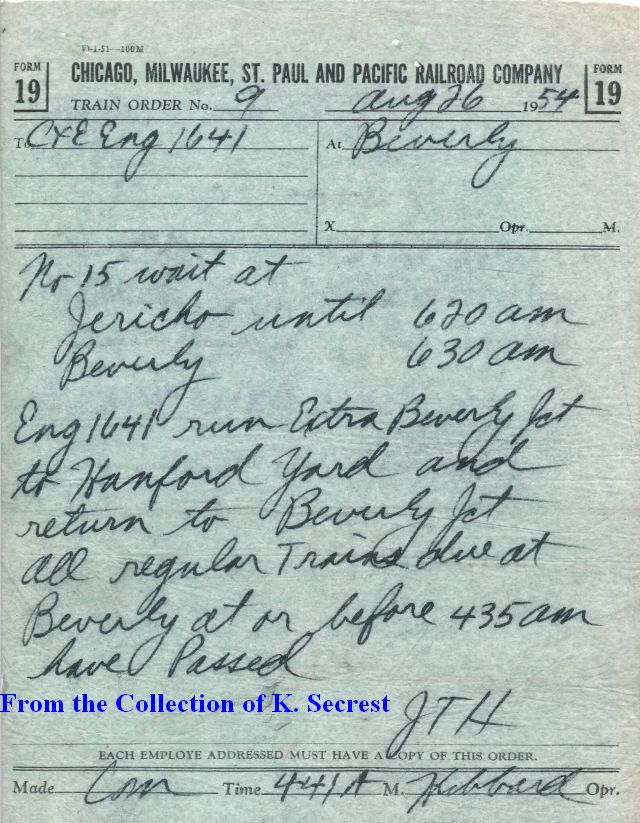 VI-1-51—100M
FORM 19 CHICAGO, MILWAUKEE, ST. PAUL AND PACIFIC RAILROAD COMPANY FORM 19
TRAIN ORDER No. 9 Aug 26 1954
To C&E Eng 1641 At Beverly
X Opr. M.
No 15 wait at
Jericho until 620 am
Beverly 630 am
Eng 1641 run Extra Beverly Jct
to Hanford Yard and
return to Beverly Jct
All regular Trains due at
Beverly at or before 435 am
have Passed
From the Collection of K. Secrest
JTH
EACH EMPLOYE ADDRESSED MUST HAVE A COPY OF THIS ORDER.
Made Com Time 441 A M. Hibbard Opr.